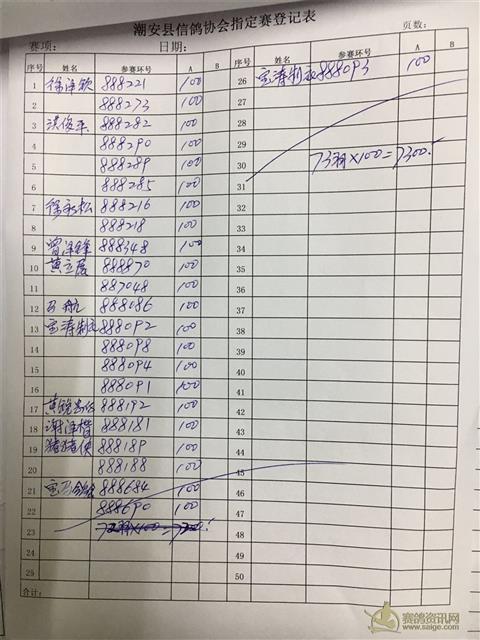 潮安县信鸽协会指定赛登记表
赛项: 日期: 页数:
序号 姓名 参赛环号 A B
1 888221 100
2 888273 100
3 洪俊平 888282 100
4 888290 100
5 888289 100
6 888285 100
7 徐永松 888216 100
8 888218 100
9 曾泽锋 888348 100
10 黄立霞 888870 100
11 887048 100
12 马航 888086 100
13 宝涛制衣 888092 100
14 888098 100
15 888094 100
16 888091 100
17 888192 100
18 谢泽楷 888181 100
19 猪猪侠 888189 100
20 888188 100
21 888684 100
22 888690 100
23
24
25
合计:
序号 姓名 参赛环号 A B
26 宝涛制衣 888093 100
27
28
29
30 73羽×100=7300.
31
32
33
34
35
36
37
38
39
40
41
42
43
44
45
46
47
48
49
50
赛鸽资讯网
www.saige.com